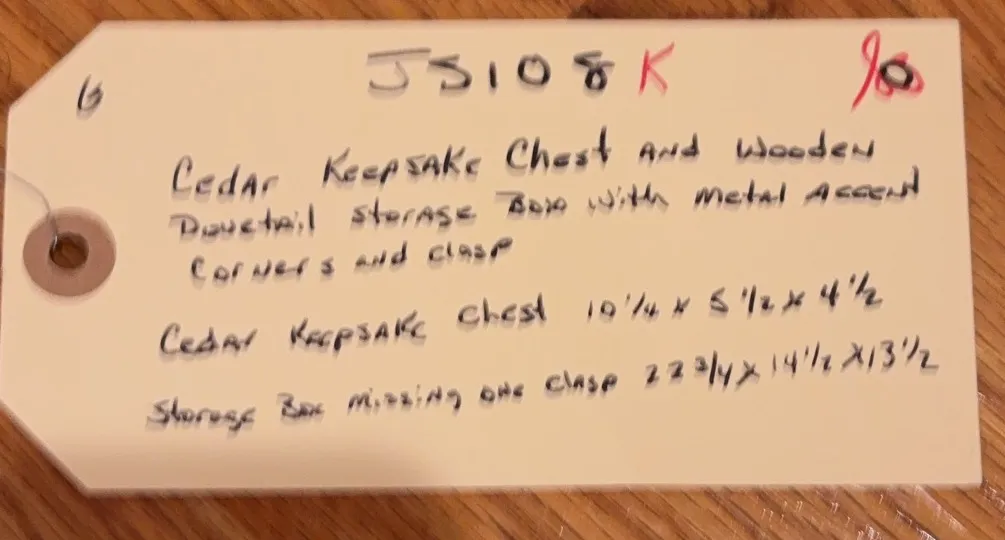 JS108K
Cedar Keepsake Chest and Wooden
Dovetail Storage Box with Metal Accent
Corners and clasp
Cedar Keepsake Chest 10 1/4 x 5 1/2 x 4 1/2
Storage Box missing one clasp 22 3/4 x 14 1/2 x 13 1/2